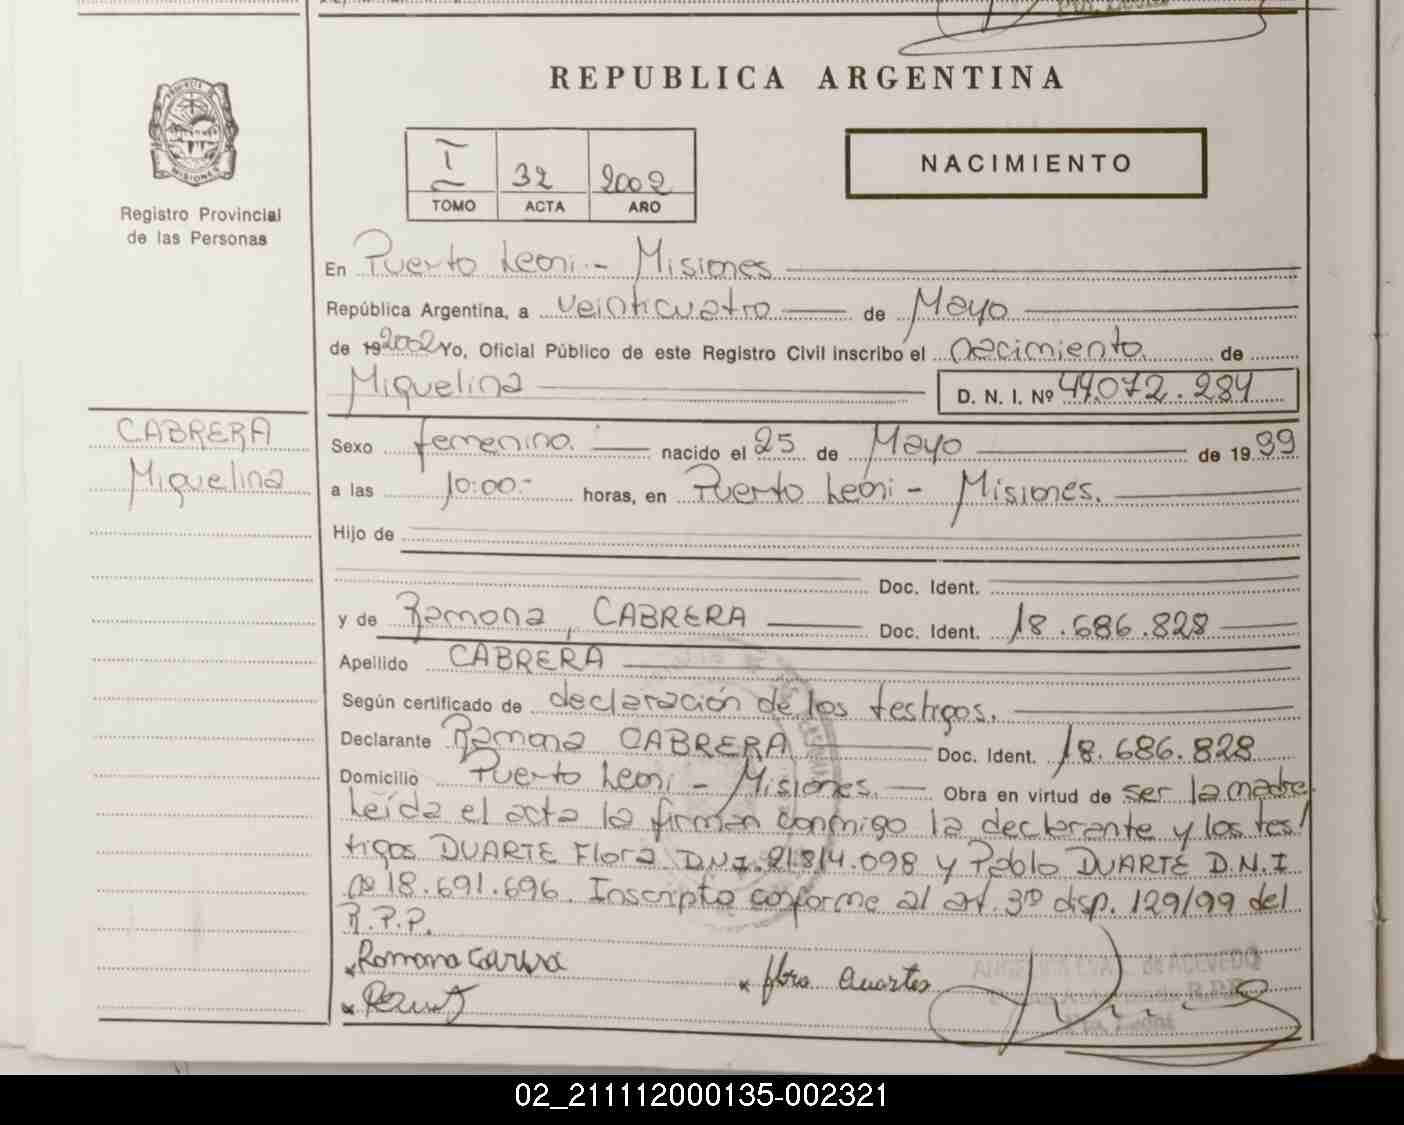 REPUBLICA ARGENTINA
PROVINCIA DE MISIONES
Registro Provincial
de las Personas
I 32 2002
TOMO ACTA AÑO
NACIMIENTO
En Puerto Leoni - Misiones
República Argentina, a veinticuatro de Mayo
de 19 2002 Yo, Oficial Público de este Registro Civil inscribo el nacimiento de
Miquelina D. N. I. Nº 44.072.284
CABRERA
Miquelina
Sexo femenino. nacido el 25 de Mayo de 19 99
a las 10:00.- horas, en Puerto Leoni - Misiones.
Hijo de
Doc. Ident.
y de Ramona, CABRERA Doc. Ident. 18.686.828
Apellido CABRERA
Según certificado de declaración de los testigos.
Declarante Ramona CABRERA Doc. Ident. 18.686.828
Domicilio Puerto Leoni - Misiones. Obra en virtud de ser la madre.
Leída el acta la firman conmigo la declarante y los tes/
tigos DUARTE Flora D.N.I. 21.814.098 y Pablo DUARTE D.N.I
nº 18.691.696. Inscripto conforme al art. 3º disp. 129/99 del
R.P.P.
x Romona
x flora duartes
de ACEVEDO
R.P.P.
02_211112000135-002321